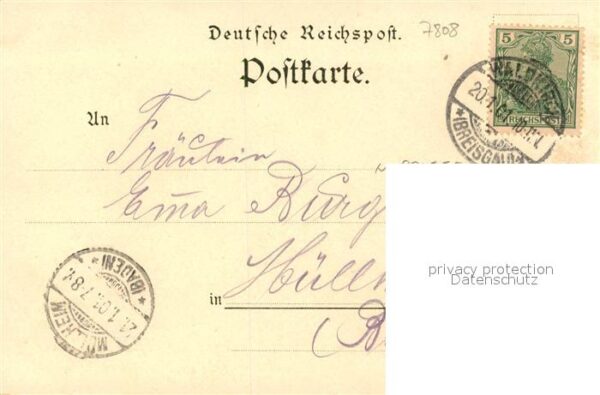 Deutsche Reichspost.
7808
Postkarte.
5 5
REICHSPOST
WALDKIRCH
20.1.01.
*(BREISGAU)*
An
Fräulein
Emma Burg
Müllh
in
(B
MÜLLHEIM
21.1.01. 7-8V.
*(BADEN)*
privacy protection
Datenschutz